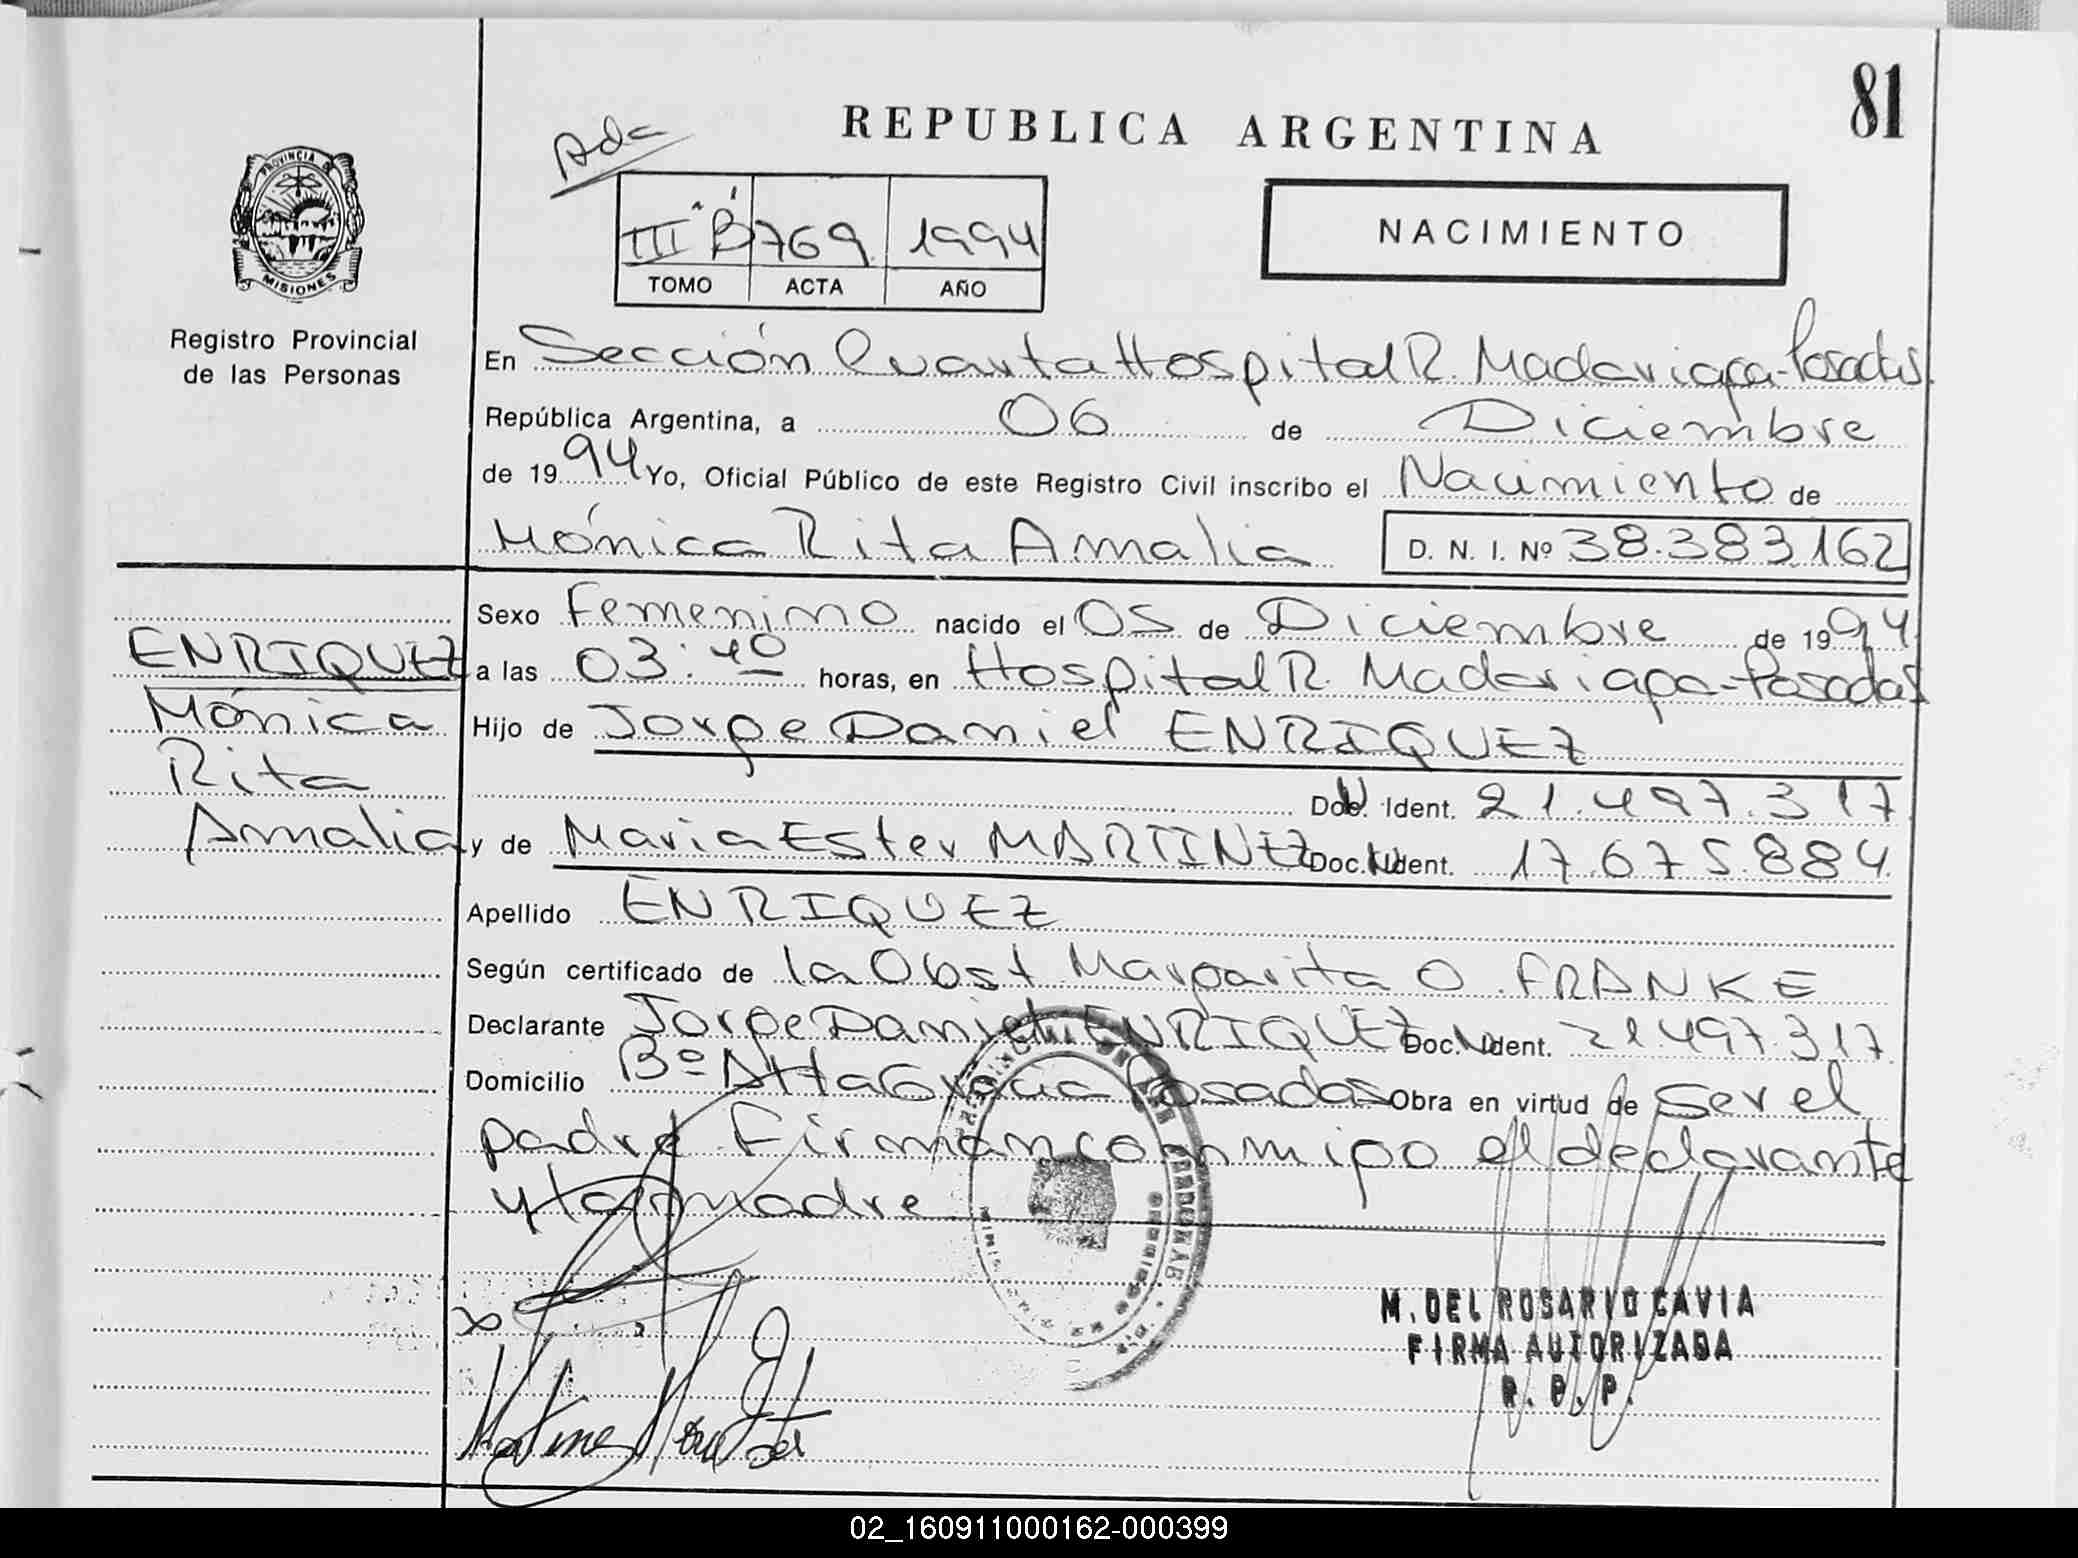 81
REPUBLICA ARGENTINA
Ada
III B 769 1994
TOMO ACTA AÑO
NACIMIENTO
PROVINCIA DE
MISIONES
Registro Provincial
de las Personas
En Sección Cuarta Hospital R. Madariaga-Posadas.
República Argentina, a 06 de Diciembre
de 1994 Yo, Oficial Público de este Registro Civil inscribo el Nacimiento de
Mónica Rita Amalia D. N. I. Nº 38.383.162
Sexo Femenino nacido el 05 de Diciembre de 1994
a las 03:40 horas, en Hospital R. Madariaga-Posadas
Hijo de Jorge Daniel ENRIQUEZ
Doc. Ident. 21.497.317
y de Maria Ester MARTINEZ Doc. Ident. 17.675.884
Apellido ENRIQUEZ
Según certificado de la Obst Margarita O. FRANKE
Declarante Jorge Daniel ENRIQUEZ Doc. Ident. 21497.317
Domicilio Bº Alta Gracia Posadas Obra en virtud de ser el
padre. Firman conmigo el declarante
y la madre
ENRIQUEZ
Mónica
Rita
Amalia
M. DEL ROSARIO CAVIA
FIRMA AUTORIZADA
R. P. P.
02_160911000162-000399